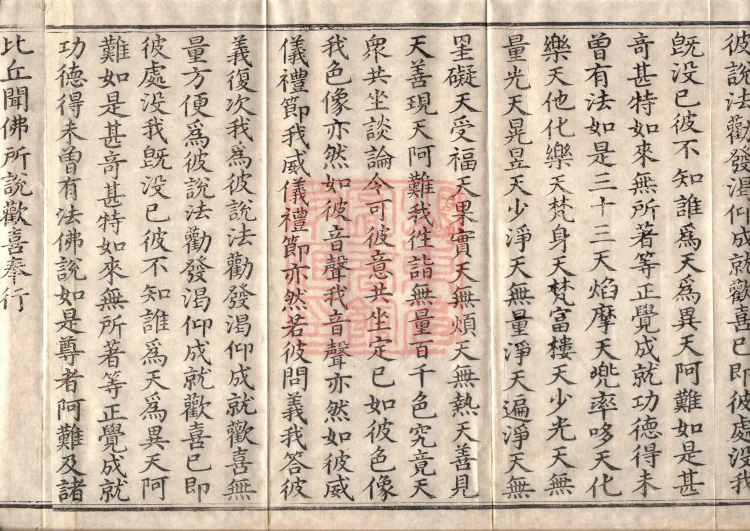 彼說法勸發渴仰成就歡喜已即彼處沒我
旣没已彼不知誰爲天爲異天阿難如是甚
奇甚特如來無所著等正覺成就功德得未
曾有法如是三十三天焰摩天兜率哆天化
樂天他化樂天梵身天梵富樓天少光天無
量光天晃昱天少淨天無量淨天遍淨天無
罣礙天受福天果實天無煩天無熱天善見
天善現天阿難我徃詣無量百千色究竟天
衆共坐談論令可彼意共坐定已如彼色像
我色像亦然如彼音聲我音聲亦然如彼威
儀禮節我威儀禮節亦然若彼問義我答彼
義復次我爲彼說法勸發渴仰成就歡喜無
量方便爲彼說法勸發渴仰成就歡喜已即
彼處没我旣没已彼不知誰爲天爲異天阿
難如是甚奇甚特如來無所著等正覺成就
功德得未曾有法佛說如是尊者阿難及諸
比丘聞佛所說歡喜奉行